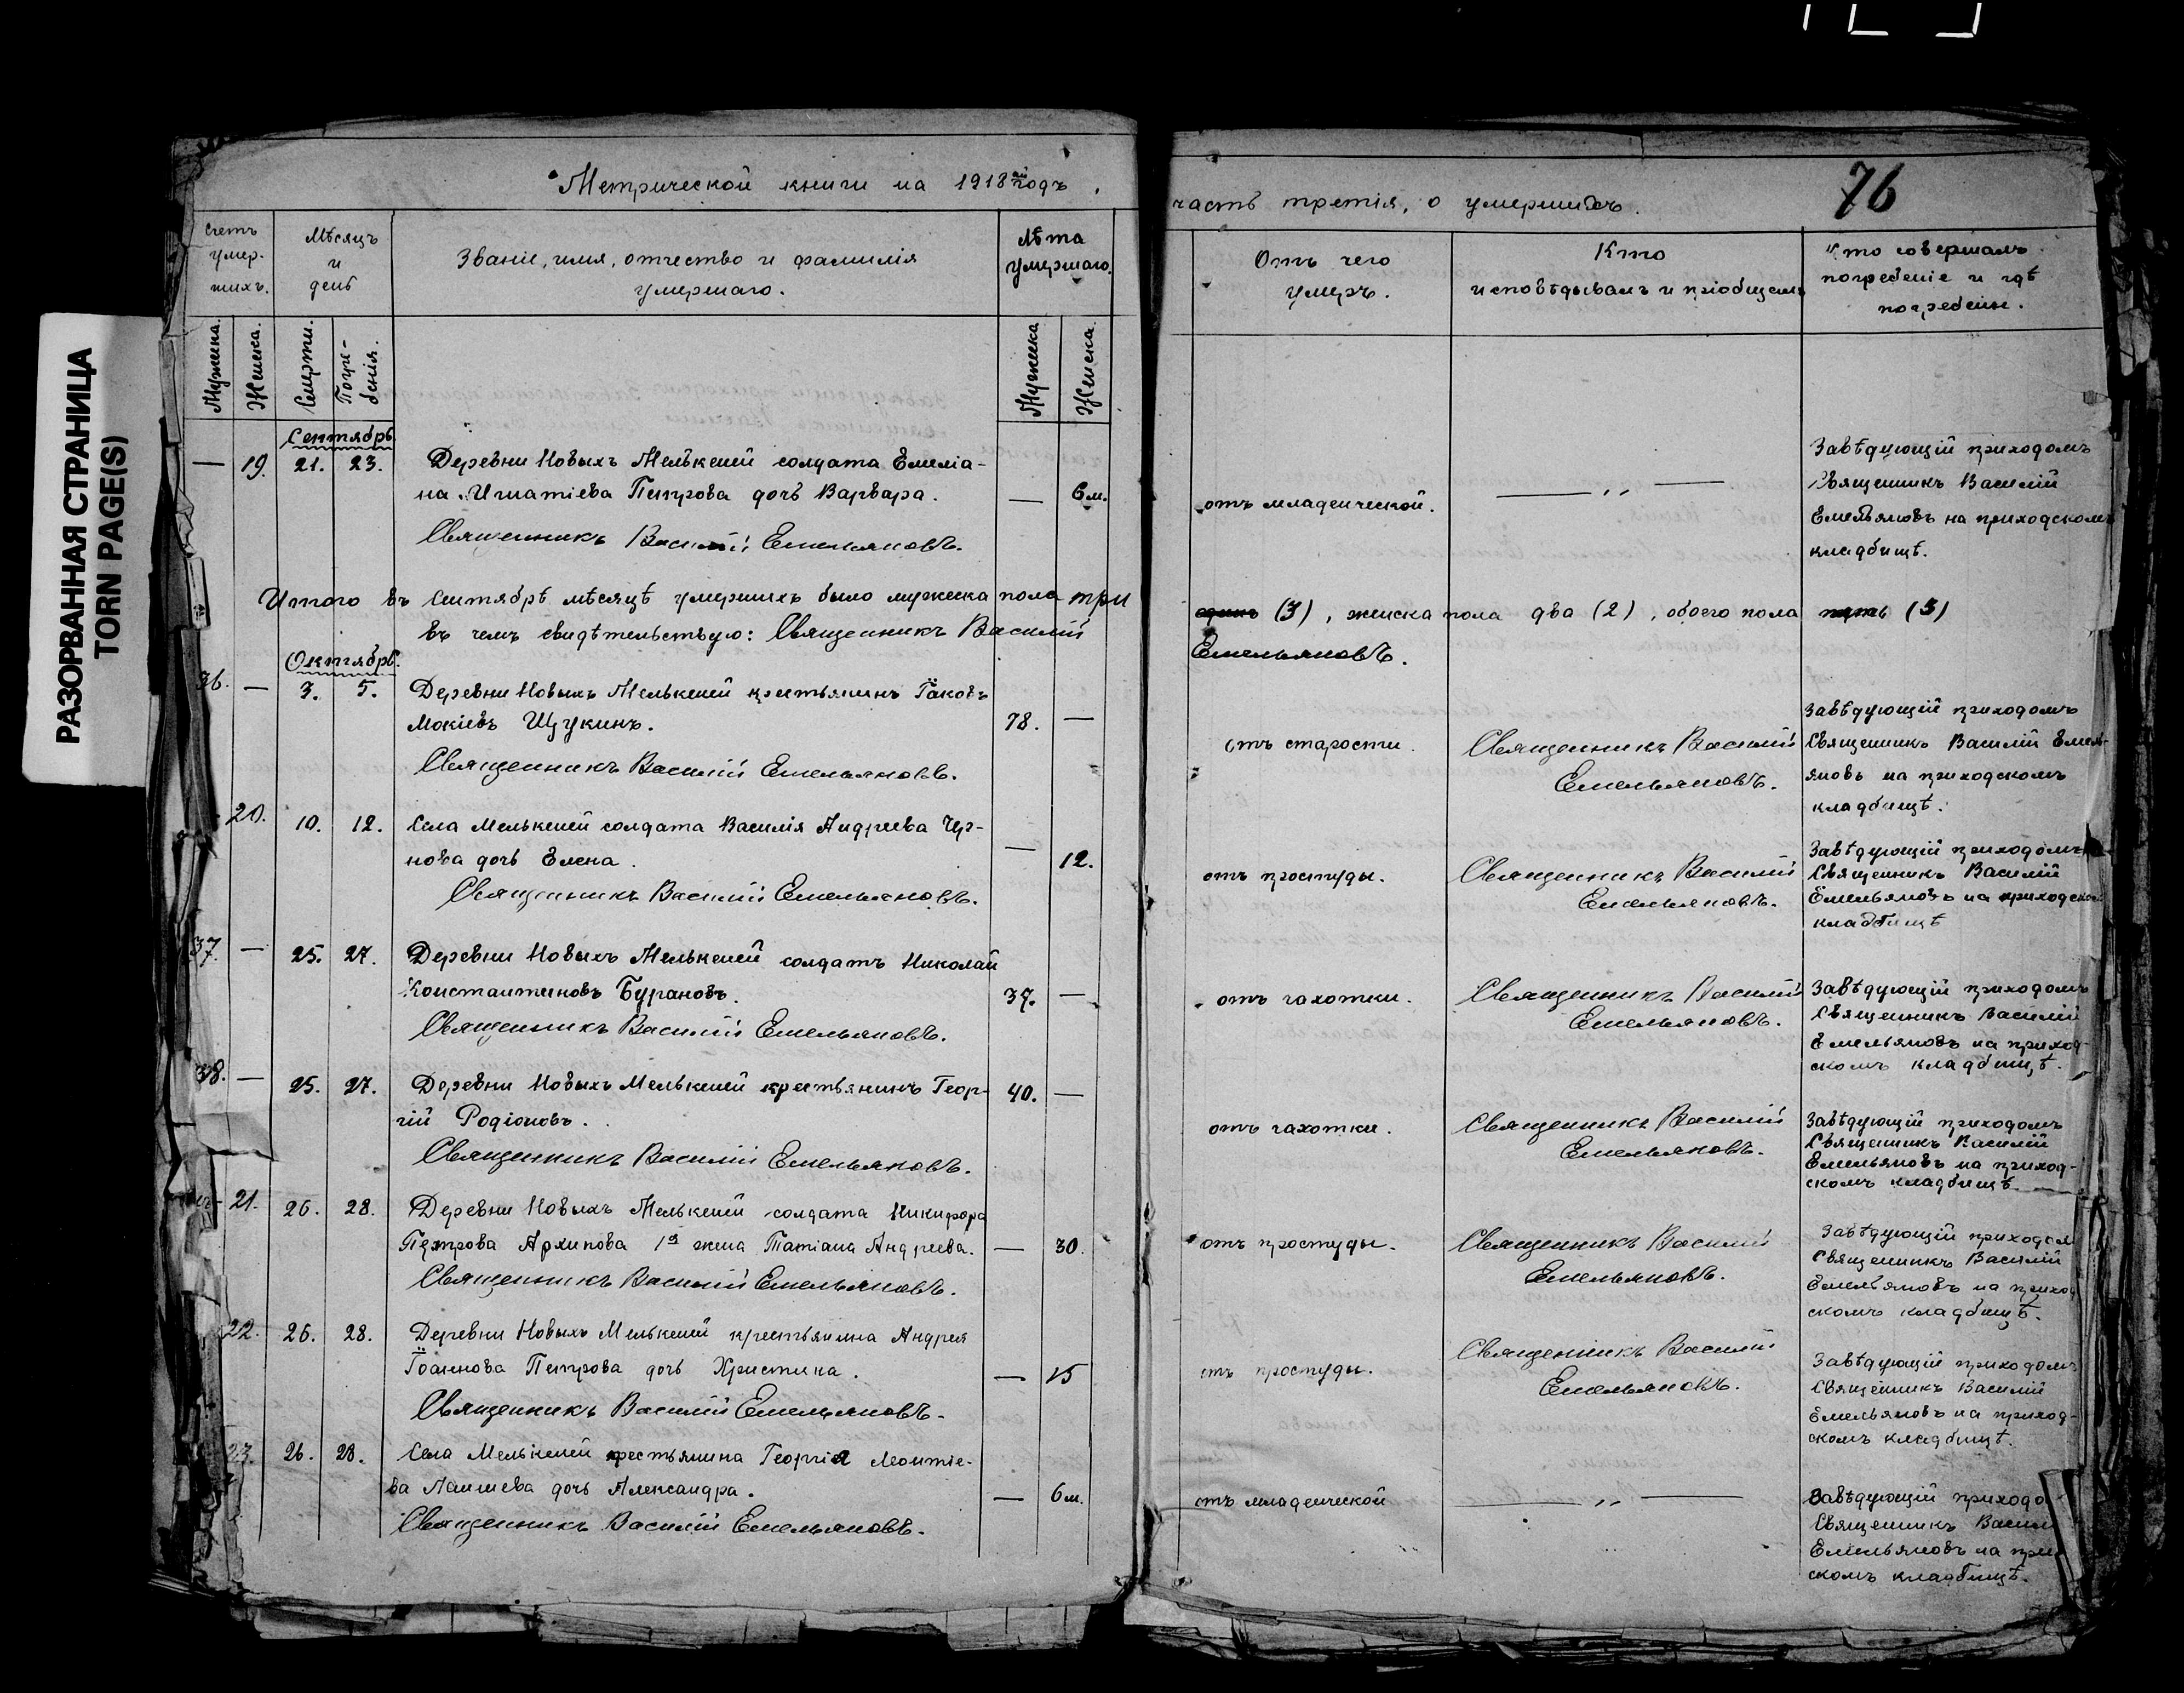 РАЗОРВАННАЯ СТРАНИЦА
TORN PAGE(S)
Метрической книги на 1918ый годъ.
Счетъ умер-шихъ.
Мѣсяцъ и день
Званіе, имя, отчество и фамилія умершаго.
Лѣта умершаго.
Мужика. Женска. Смерти. Погре-бенія. Мужика Женска.
Сентябрь
— 19. 21. 23. Деревни Новыхъ Мелькеней солдата Емеліа-
на Игнатіева Петрова дочь Варвара. — 6 м.
Священникъ Василій Емельяновъ.
Итого въ Сентябрѣ мѣсяцѣ умершихъ было мужеска пола три
въ чемъ свидѣтельствую: Священникъ Василій
Октябрь.
36. — 3. 5. Деревни Новыхъ Мелькеней крестьянинъ Іаковъ
Мокіевъ Щукинъ. 78. —
Священникъ Василій Емельяновъ.
20. 10. 12. Села Мелькеней солдата Василія Андреева Чер-
нова дочь Елена. — 12.
Священникъ Василій Емельяновъ.
37. — 25. 27. Деревни Новыхъ Мелькеней солдатъ Николай
Константиновъ Бурановъ. 37. —
Священникъ Василій Емельяновъ.
38. — 25. 27. Деревни Новыхъ Мелькеней крестьянинъ Геор- 40. —
гій Родіоновъ.
Священникъ Василій Емельяновъ.
21. 26. 28. Деревни Новыхъ Мелькеней солдата Никифора
Петрова Архипова 1я жена Татіана Андреева. — 30.
Священникъ Василій Емельяновъ.
22. 26. 28. Деревни Новыхъ Мелькеней крестьянина Андрея
Іоаннова Петрова дочь Христина. — 15
Священникъ Василій Емельяновъ.
23. 26. 28. Села Мелькеней крестьянина Георгія Леонтіе-
ва дочь Александра. — 6 м.
Священникъ Василій Емельяновъ.
часть третія, о умершихъ. 76
Отъ чего умеръ.
Кто исповѣдывалъ и пріобщалъ
Кто совершалъ погребеніе и гдѣ погребены.
отъ младенческой. — „ —
Завѣдующій приходомъ
Священникъ Василій
Емельяновъ на приходскомъ
кладбищѣ.
одинъ (3), женска пола два (2), обоего пола пять (5)
Емельяновъ.
отъ старости.
Священникъ Василій
Емельяновъ.
Завѣдующій приходомъ
Священникъ Василій Емель-
яновъ на приходскомъ
кладбищѣ.
отъ простуды.
Священникъ Василій
Емельяновъ.
Завѣдующій приходомъ
Священникъ Василій
Емельяновъ на приходском
кладбищѣ
отъ чахотки.
Священникъ Василій
Емельяновъ.
Завѣдующій приходомъ
Священникъ Василій
Емельяновъ на приход-
скомъ кладбищѣ.
отъ чахотки.
Священникъ Василій
Емельяновъ.
Завѣдующій приходомъ
Священникъ Василій
Емельяновъ на приход-
скомъ кладбищѣ.
отъ простуды.
Священникъ Василій
Емельяновъ.
Завѣдующій приходом
Священникъ Василій
Емельяновъ на приход
скомъ кладбищѣ.
отъ простуды.
Священникъ Василій
Емельяновъ.
Завѣдующій приходомъ
Священникъ Василій
Емельяновъ на приход-
скомъ кладбищѣ.
отъ младенческой — „ —
Завѣдующій приходо
Священникъ Васил
Емельяновъ на при
скомъ кладбищѣ.